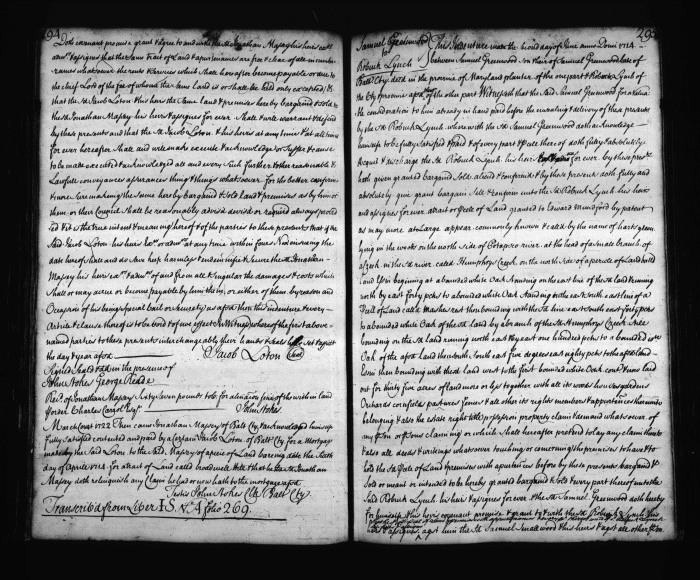 94
Doth covenant promise grant & agree to and with the sd Jonathan Massey his heirs exrs
admrs & assigns that the same Tract of Land & apurtenances are free & clear of all incumbe-
rances whatsoever the rents & services which shall hereafter become payable or due to
the chief Lord of the fee of whom the same land is or shall be held only excepted &
that the sd Jacob Loton & his heirs the same land & premises hereby bargained & sold to
the sd Jonathan Massey his heirs & assigns for ever shall & will warrant & defend
by these presents and that the sd Jacob Loton & his heirs at any time & at all times
for ever hereafter shall and will make execute & acknowledge or suffer & cause
to be made executed & acknowledged all and every such further & other reasonable &
Lawfull conveyances assurances thing & things whatsoever for the better assurance
& more sure making the same hereby bargained & sold land & premises as by him or
them or their Councel shall be reasonably advised devised or required always provided
it is the true intent & meaning hereof & of the parties to these presents that if the
said Jacob Loton his heirs exrs or admrs at any time within four years ensuing the
date hereof shall and do save keep harmless & indemnifie & secure the sd Jonathan
Massey his heirs exrs & admrs of and from all & singular the damages & costs which
shall or may accrue or become payable by him the sd or either of them by reason and
Occasion of his being special bail or security as aforesd then this indenture & every
Article & clause thereof is to be void & of none effect In Witness whereof the first above
named parties to these presents interchangeably their hands & seals have set & affixt
the day & year aforesd
Jacob Loton (seal)
Signed Seald & dd in the presence of
John Stokes George Reade
Recd. of Jonathan Massey Sixty seven pounds tobo for alienation fine of the within land
p order Charles Carrol Esqr
John Stokes
March Court 1722 Then came Jonathan Massey of Balt Cty & acknowledged himself
fully satisfied contented and paid by a certain Jacob Loton of Balt Cty for a Mortgage
made by the said Loton to the sd Massey of a piece of Land bearing date the sixth
day of April 1714 for a tract of Land called Broadwell Note that the sd Jonathan
Massey doth relinquish any Claim he had or now hath to the mortgage aforesd
Testis John Stokes Clk Balt Cty
Transcrib'd from Liber I S. No. A folio 269.
95
Samuel Greenwood
To
Robuck Lynch
This Indenture made the second day of June anno Domi 1714
between Samuel Greenwood son & heir of Samuel Greenwood late of
Baltre Cty decd in the province of Maryland planter of the one part & Robuck Lynch of
the Cty & province aforesd of the other part Witnesseth that the said Samuel Greenwood for & in
the consideration to him already in hand paid before the ensealing & delivery of these presents
by the sd Robuck Lynch where with the sd Samuel Greenwood doth acknowledge
himself to be fully satisfied & paid & of every part & peice thereof doth fully & absolutely
acquit & discharge the sd Robuck Lynch his heirs for ever by these presents
hath given granted bargained sold aliend & confirmed & by these presents doth fully and
absolutely give grant bargain sell & confirm unto the sd Robuck Lynch his heirs
and assigns for ever a tract or peice of Land granted to Edward Mumford by patent
as may more at Large appear commonly known & calld by the name of
lying in the woods on the north side of Potapsco river at the head of a small branch of
a creek in the sd river called Humphrys Creek on the north side of a peice of Land called
Land Esri begining at a bounded white Oak standing in the east line of the sd land & running
north by east forty perches to a bounded white Oak standing in the east south east line of a
peice of Land calld then bounding with the sd line east south east forty perches
to a bounded white Oak of the sd land by a branch of the sd Humphrys Creek side
bounding on the sd land running north east & by east one hundred perches to a bounded white
Oak of the aforesd land then south south east five degrees east eighty perches to the aforesd land
Esri then bounding with the sd land west to the first bounded white Oak contg & now laid
out for thirty five acres of land more or less together with all its woods houses gardens
Orchards cornfields pastures fences & all other its rights members & appurtenances there unto
belonging & also the estate right title possession property claim & demand whatsoever of
any person or persons claiming or which shall hereafter pretend to lay any claim there to
& also all deeds & writings whatsoever touching or concerning the premises to have & to
hold the sd peice of Land & premises with apurtenances before by these presents bargaind &
sold or meant or intended to be hereby granted bargaind & sold & every part thereof unto the
said Robuck Lynch his heirs & assigns for ever & the sd Samuel Greenwood doth hereby
for himself & his heirs covenant promise & grant to & with the sd Robuck Lynch his
heirs & assigns, agst him the sd Samuel Smallwood & his heirs & agst all other person